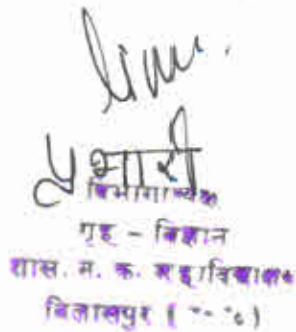 प्रभारी
विभागाध्यक्ष
गृह - विज्ञान
शास. म. क. महाविद्यालय
बिलासपुर (